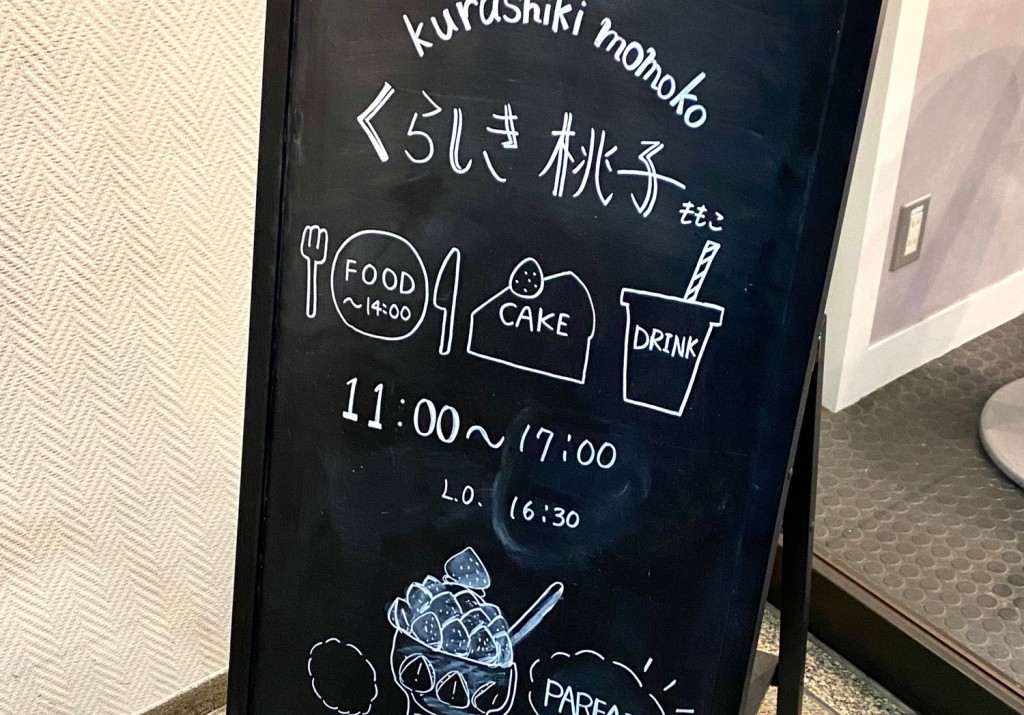 kurashiki momoko
くらしき 桃子
ももこ
FOOD
～14:00
CAKE
DRINK
11:00～17:00
L.O. 16:30